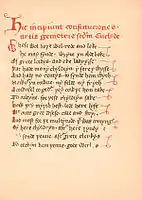 Hic incipiunt constituciones
artis gemetrie secundum Euclyde
Whose wol bothe wel rede and loke
He may fynde wryte yn olde boke
Of grete lordys and eke ladyysse
That hade mony chyldryn y fere y wisse
And hade no rentys to fynde hem wyth
Nowther yn towne ny felde ny fryth
A cownsel togeder they cowthe hem take
To ordeyne for these chyldryn sake
How they myȝth best lede here lyfe
Withoute gret desese care and stryfe
And most for the multytude that was comynge
Of here chyldryn after here
sende thenne after grete clerkys
To techyn hem thenne gode werkys